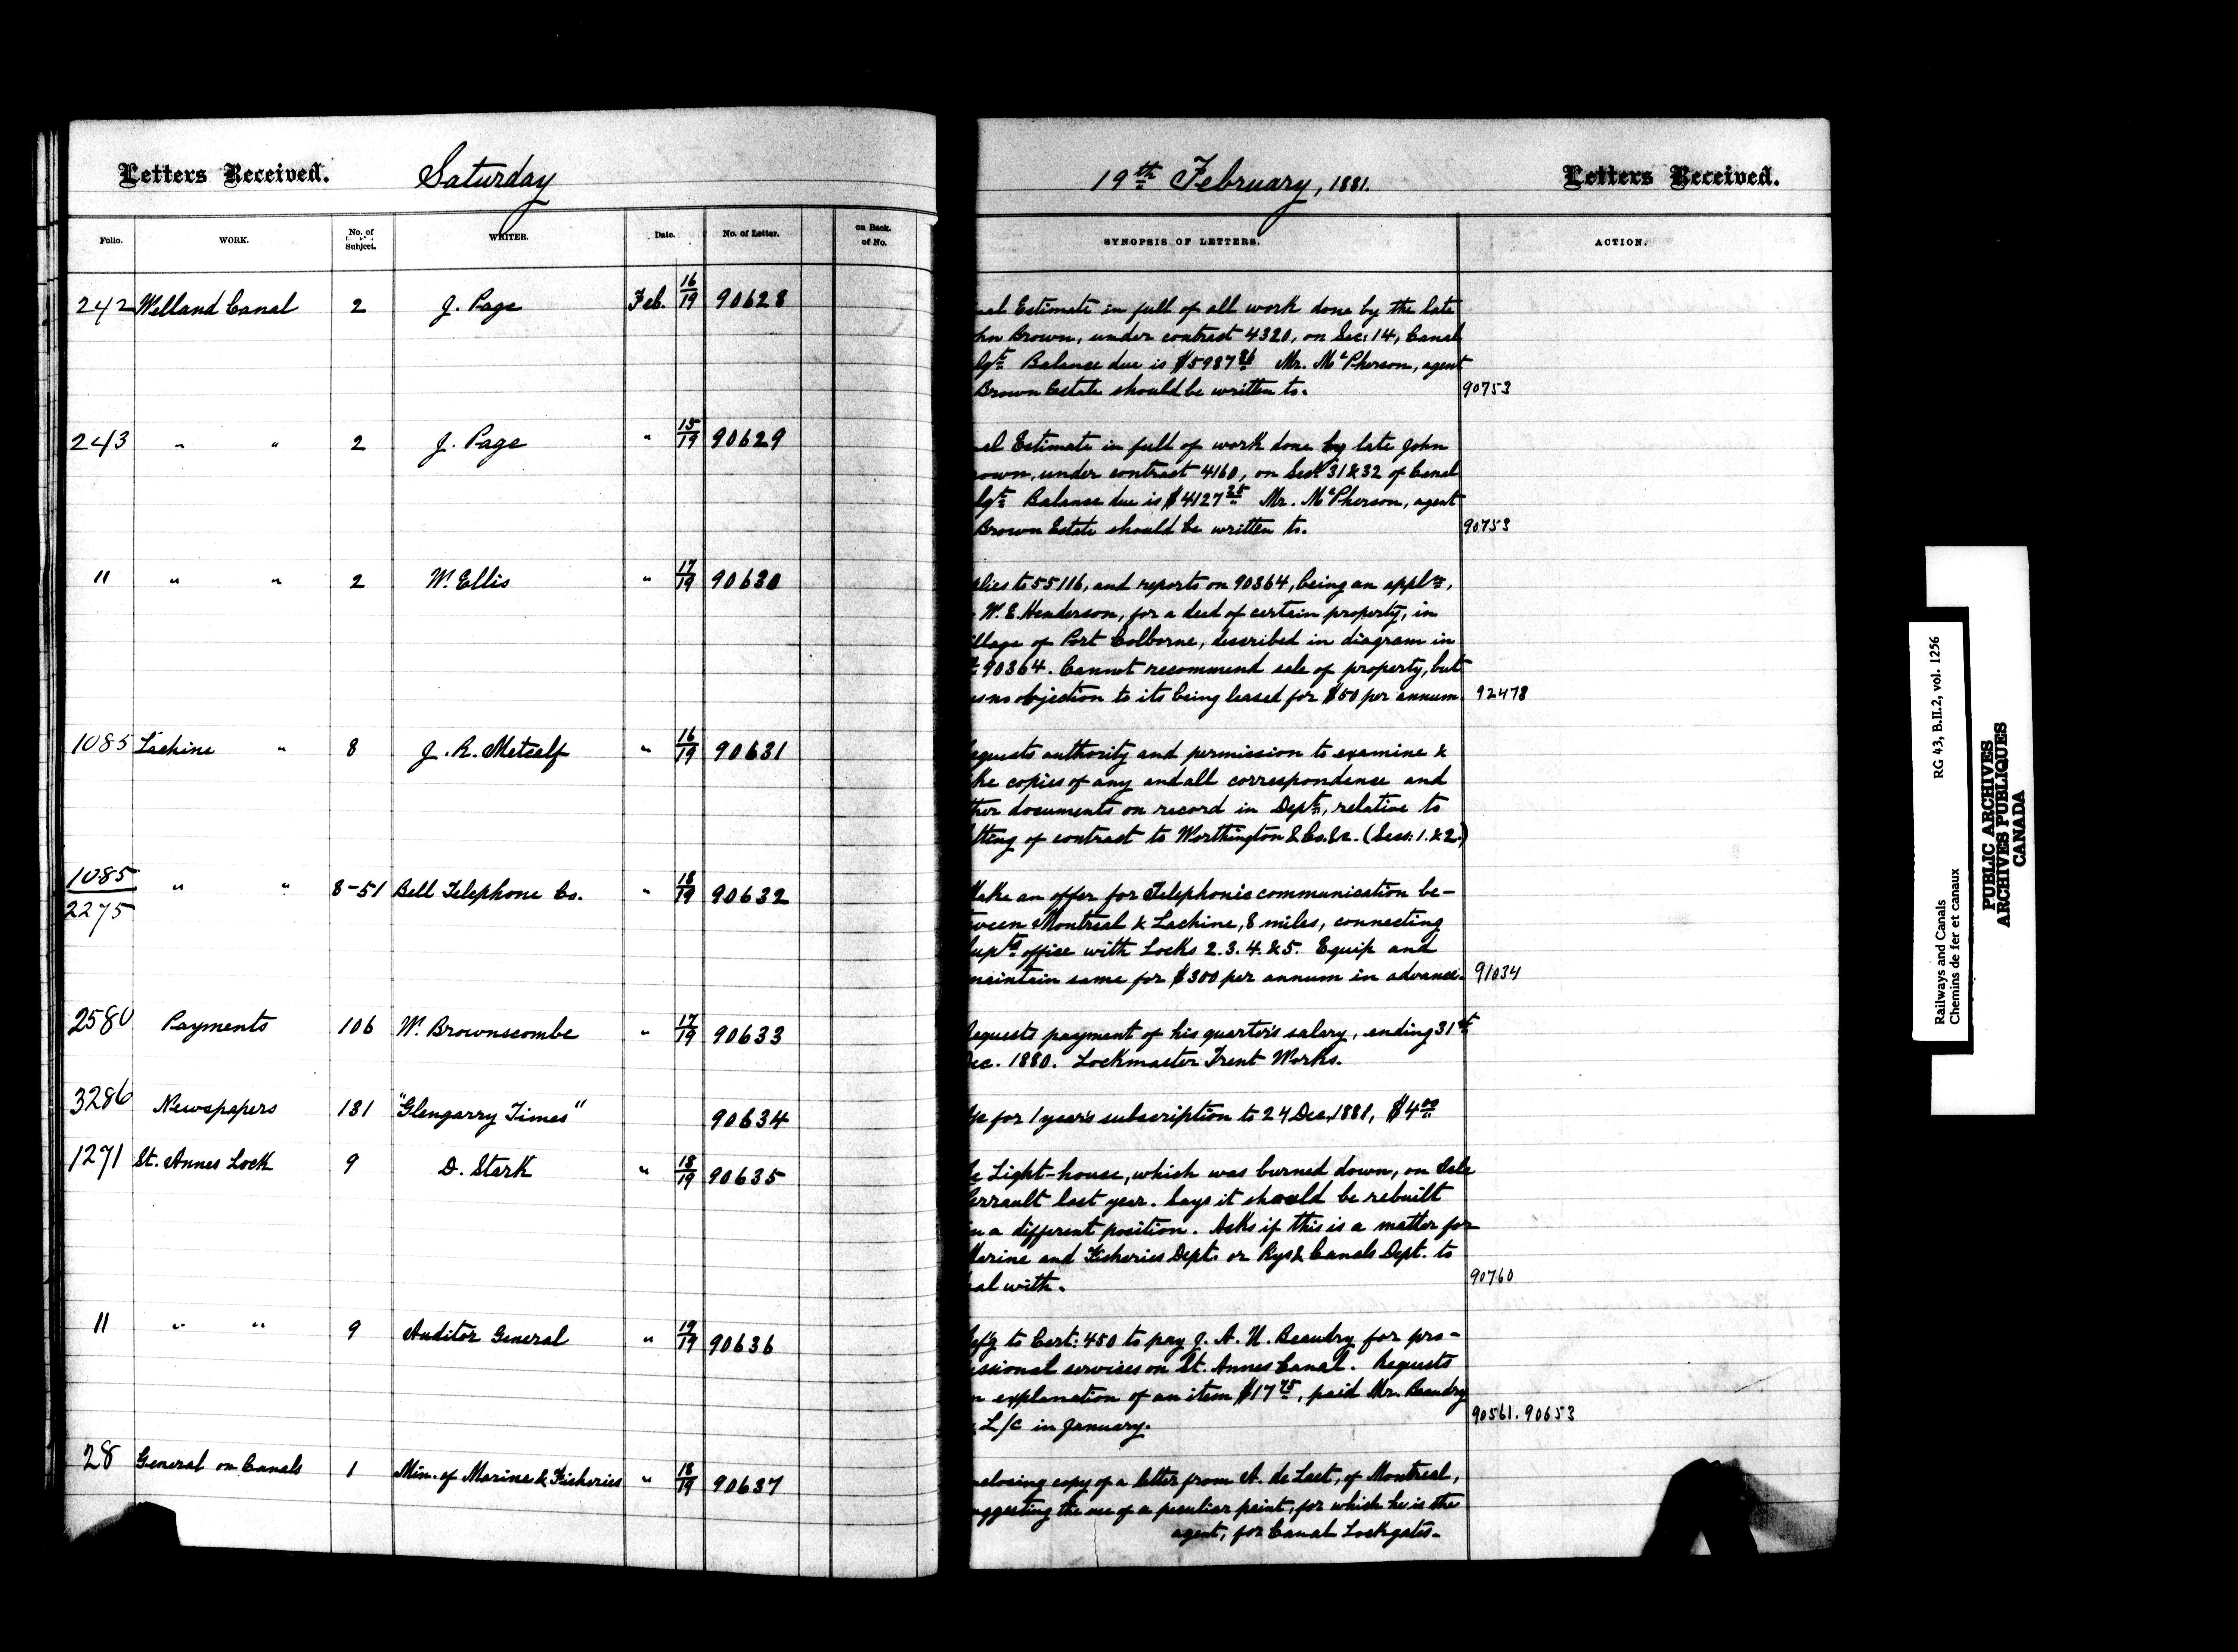 Letters Received.
Saturday
Folio.
WORK.
No. of
Subject.
WRITER.
Date.
No. of Letter.
on Back.
of No.
242 Welland Canal 2 J. Page Feb. 16/19 90628
243 " " 2 J. Page " 15/19 90629
" " " 2 W. Ellis " 17/19 90630
1085 Lachine " 8 J. R. Metcalf " 16/19 90631
1085/2275 " " 8-51 Bell Telephone Co. " 18/19 90632
2580 Payments 106 W. Brownscombe " 17/19 90633
3286 Newspapers 131 "Glengarry Times" 90634
1271 St. Annes Lock 9 D. Stark " 18/19 90635
" " " 9 Auditor General " 19/19 90636
28 General on Canals 1 Min. of Marine & Fisheries " 18/19 90637
19th February, 1881.
Letters Received.
SYNOPSIS OF LETTERS.
ACTION.
nal Estimate in full of all work done by the late
hn Brown, under contract 4320, on Sec: 14, Canal
lgt. Balance due is $5987 86 Mr. McPherson, agent
Brown Estate should be written to. 90753
nal Estimate in full of work done by late John
rown, under contract 4160, on Secs 31 & 32 of Canal
lgt. Balance due is $4127 25 Mr. McPherson, agent
Brown Estate should be written to. 90753
plies to 55116, and reports on 90364, being an appln,
W. E. Henderson, for a deed of certain property, in
illage of Port Colborne, described in diagram in
90364. Cannot recommend sale of property, but
as no objection to its being leased for $50 per annum. 92478
equests authority and permission to examine &
ke copies of any and all correspondence and
ther documents on record in Dept., relative to
tting of contract to Worthington & Co. &c. (Secs: 1. & 2.)
Make an offer for telephonic communication be-
tween Montreal & Lachine, 8 miles, connecting
Supts office with Locks 2. 3. 4. & 5. Equip and
maintain same for $300 per annum in advance. 91034
Requests payment of his quarter's salary, ending 31st
Dec. 1880. Lockmaster Trent Works.
a/c for 1 year's subscription to 24 Dec. 1881, $4 00
he Light-house, which was burned down, on Isle
Perrault last year. Says it should be rebuilt
in a different position. Asks if this is a matter for
Marine and Fisheries Dept. or Rys & Canals Dept. to
eal with. 90760
Refg to Cert: 450 to pay J. A. U. Beaudry for pro-
essional services on St. Annes Canal. Requests
n explanation of an item $17 75, paid Mr. Beaudry
L/C in January. 90561. 90653
nclosing copy of a letter from A. de Laet, of Montreal,
uggesting the use of a peculiar paint, for which he is the
agent, for Canal Lockgates.
Railways and Canals RG 43, B.II.2, vol. 1256
Chemins de fer et canaux
PUBLIC ARCHIVES
ARCHIVES PUBLIQUES
CANADA